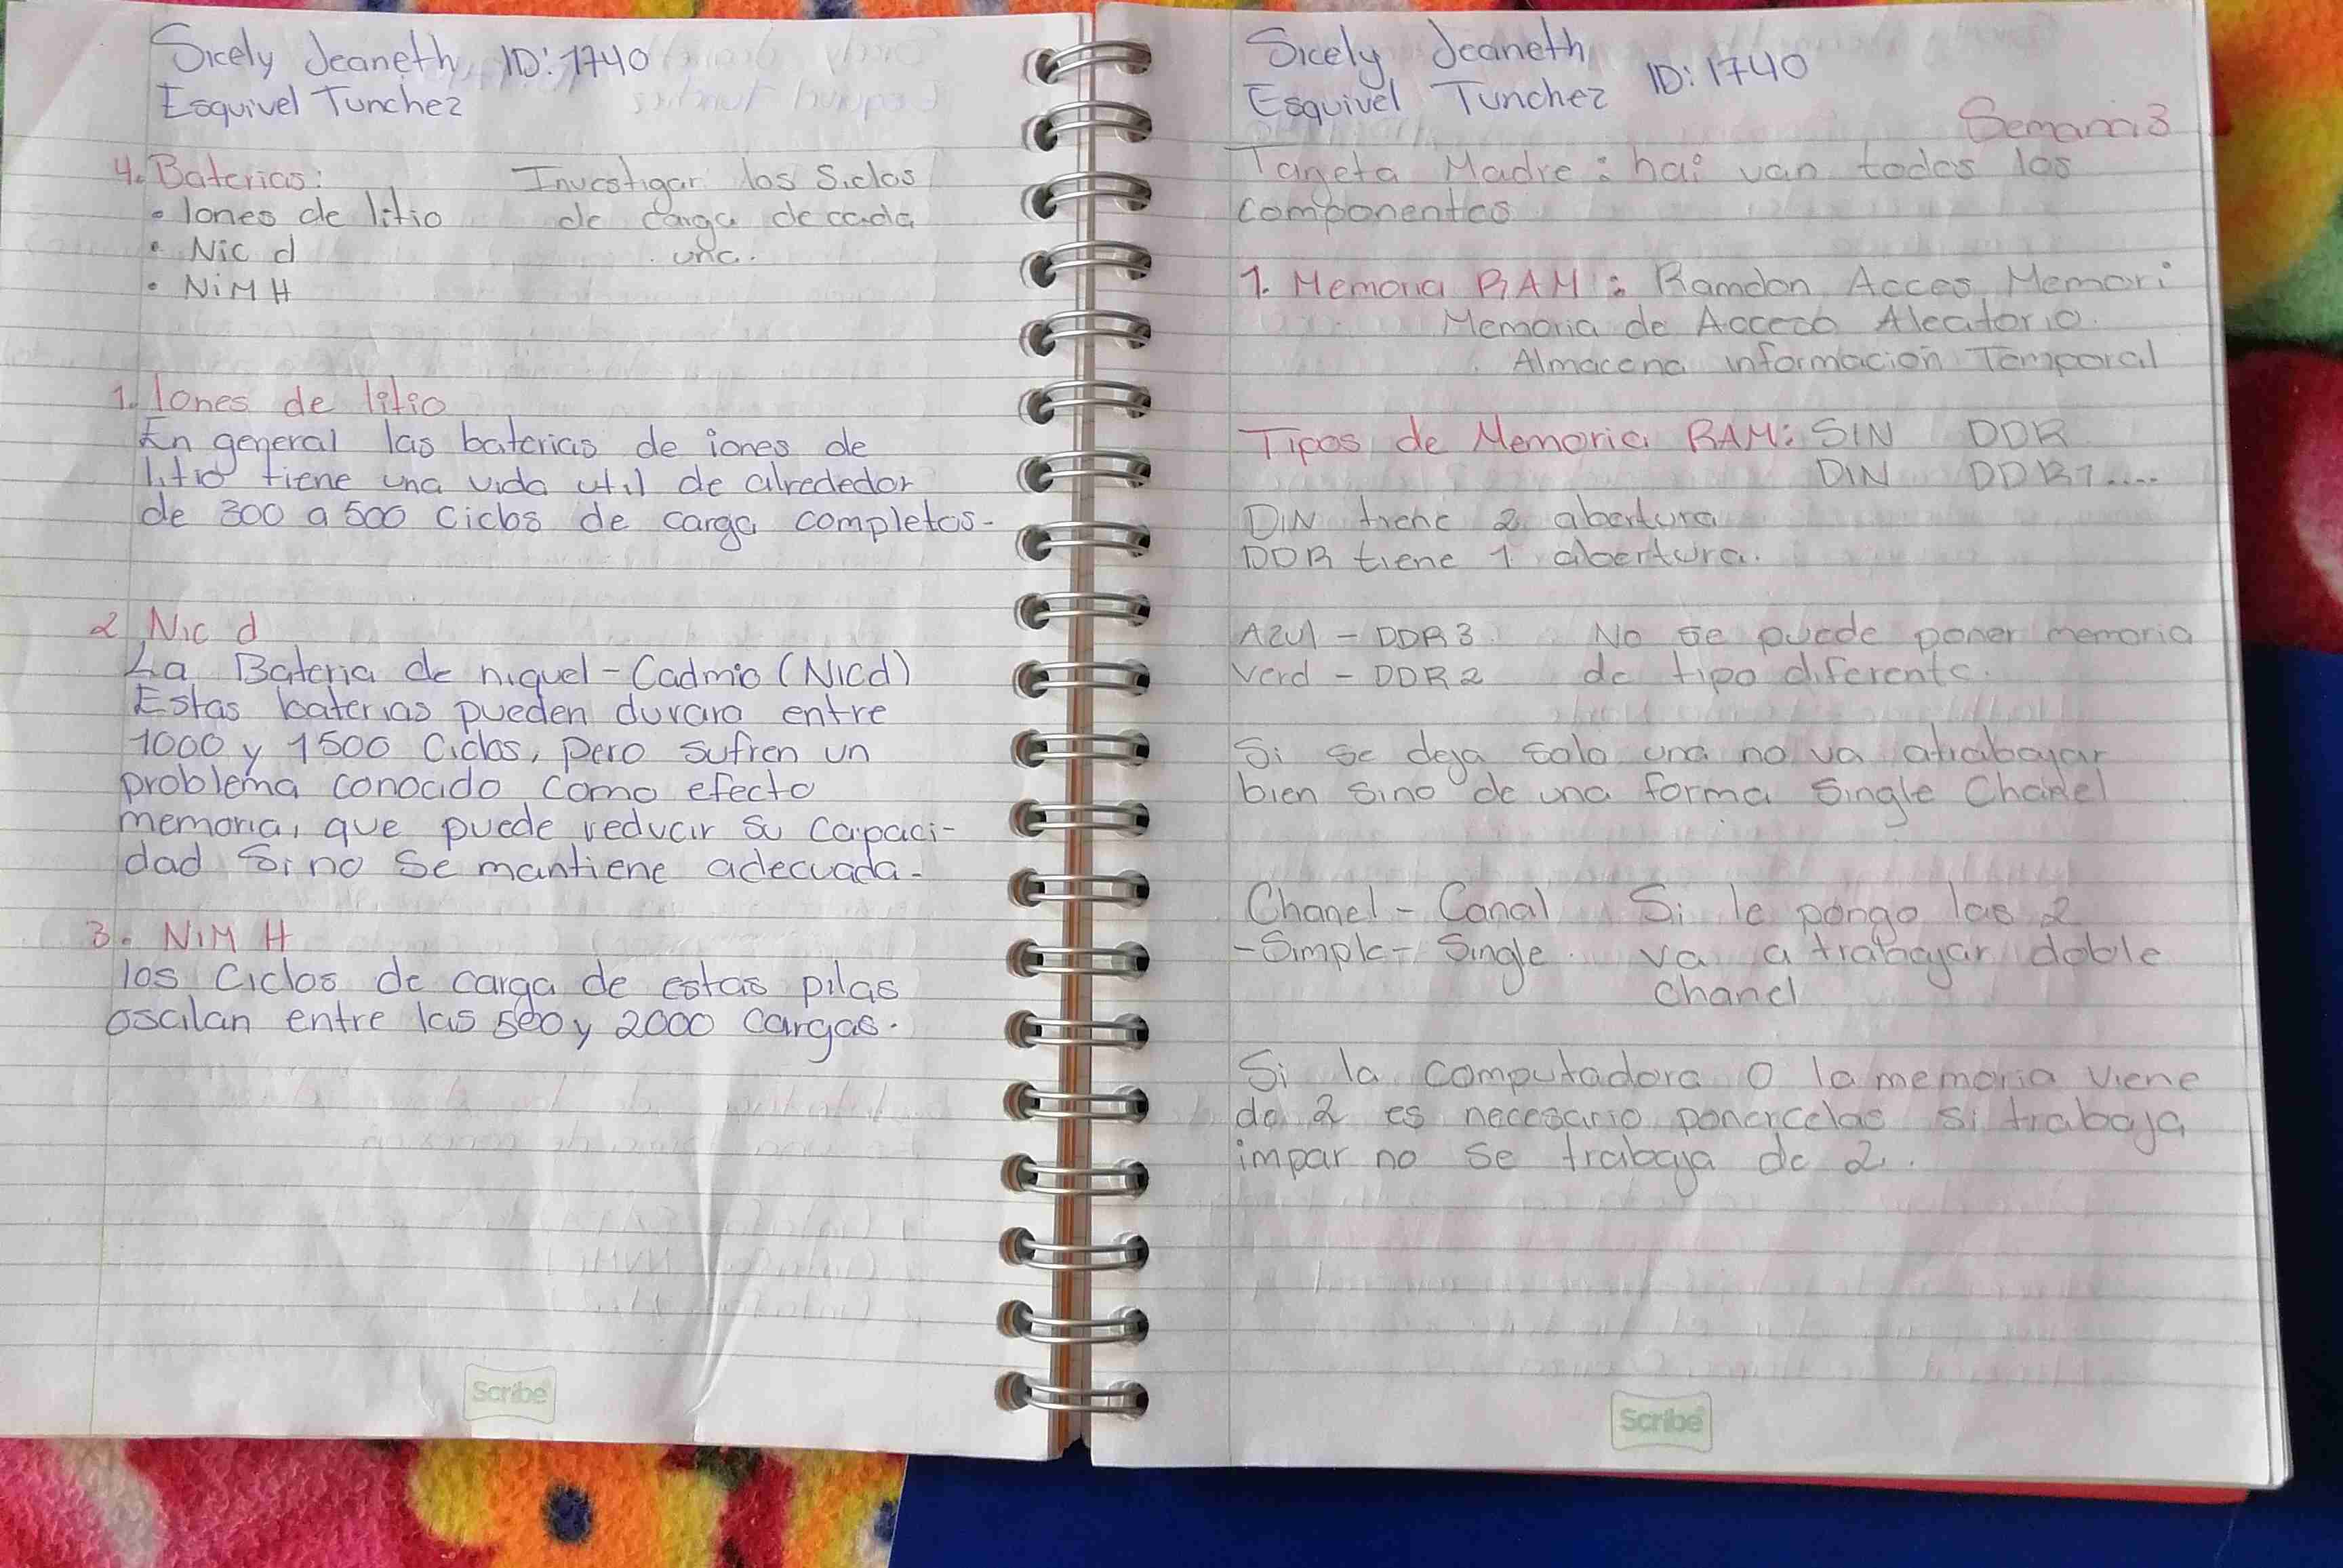 Sicely Jeaneth ID: 1740
Esquivel Tunchez
4. Baterias:
Investigar los Siclos
• Iones de litio
de carga de cada
• Nic d
una.
• NiMH
1. Iones de litio
En general las baterias de iones de
litio tiene una vida util de alrededor
de 300 a 500 Ciclos de carga completos-
2 Nic d
La Bateria de niquel-Cadmio (NiCd)
Estas baterias pueden durara entre
1000 y 1500 Ciclos, pero sufren un
problema conocido como efecto
memoria, que puede reducir su capaci-
dad Si no Se mantiene adecuada-
3. NiM H
los Ciclos de carga de estas pilas
oscilan entre las 500 y 2000 cargas.
Scribe
Sicely Jeaneth ID: 1740
Esquivel Tunchez
Semana 3
Tarjeta Madre: hai van todos los
componentes
1. Memoria RAM: Ramdon Acces Memori
Memoria de Acceso Aleatorio.
Almacena informacion Temporal
Tipos de Memoria RAM: SIN DDR
DIN DDR1....
DIN tiene 2 abertura
DDR tiene 1 abertura.
Azul - DDR3. No se puede poner memoria
Verd - DDR2 de tipo diferente.
Si se deja solo una no va atrabajar
bien sino de una forma Single Chanel
Chanel - Canal Si le pongo las 2
-Simple- Single. va a trabajar doble
chanel
Si la computadora o la memoria viene
de 2 es necesario ponercelas si trabaja
impar no se trabaja de 2.
Scribe